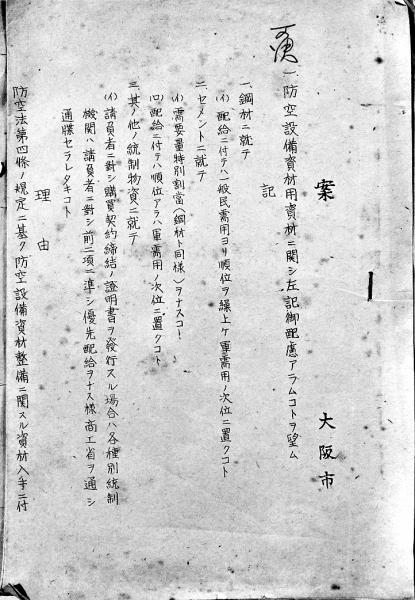 案
大阪市
一、防空設備資材用資材ニ関シ左記御配慮アラムコトヲ望ム
記
一、鋼材ニ就テ
(イ)配給ニ付テハ一般民需用ヨリ順位ヲ繰上ケ軍需用ノ次位ニ置クコト
二、セメントニ就テ
(イ)需要量特別割當(鋼材ト同様)ヲナスコト
(ロ)配給ニ付テハ順位アラハ軍需用ノ次位ニ置クコト
三、其ノ他ノ統制物資ニ就テ
(イ)請負者ニ對シ購買契約締結ノ證明書ヲ發行スル場合ハ各種別統制
機関ハ請負者ニ對シ前二項ニ準シ優先配給ヲナス様商工省ヲ通シ
通牒セラレタキコト
理由
防空法第四條ノ規定ニ基ク防空設備資材整備ニ関スル資材入手ニ付